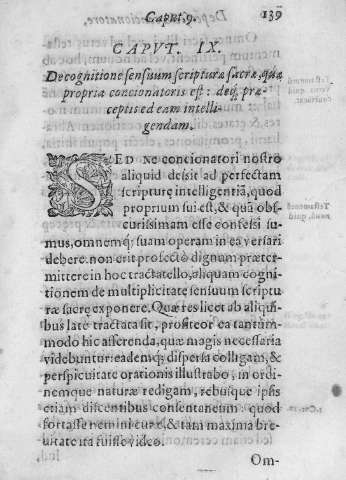 Caput. 9.
139
CAPVT. IX.
De cognitione sensuum scripturæ sacræ, quæ
propria concionatoris est: deq; præ-
ceptis ad eam intelli-
gendam.
SED ne concionatori nostro
aliquid desit ad perfectam
scripturę intelligentiã, quod
proprium sui est, & quã obs-
curissimam esse confessi su-
mus, omnemq; suam operam in ea versari
debere. non erit profecto dignum præter-
mittere in hoc tractatello, aliquam cogni-
tionem de multiplicitate sensuum scriptu-
ræ sacrę exponere. Quæ res licet ab aliqui-
bus late tractata sit, profiteor ea tantum-
modo hic asserenda, quæ magis necessaria
videbuntur: eademq; dispersa colligam, &
perspicuitate orationis illustrabo, in ordi-
nemque naturæ redigam, rebusque ipsis
etiam discentibus consentaneum: quod
fortasse nemini curæ, & tam maxima bre-
uitate ita fuisse video.
Om-